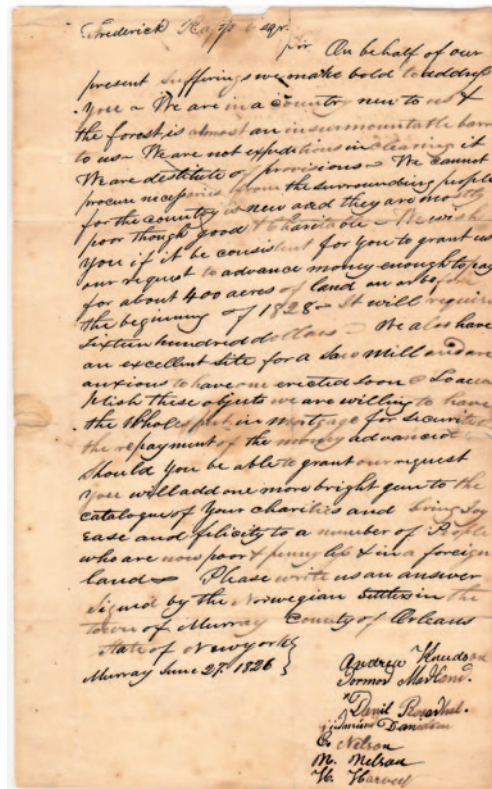 Frederick Rapp Esqr.
Sir On behalf of our
present sufferings we make bold to address
you ~ We are in a country new to us &
the forest is almost an insurmountable barr
to us ~ We are not expeditious in clearing it
We are destitute of provisions ~ We cannot
procure necessaries from the surrounding people
for the country is new and they are mostly
poor though good & charitable ~ We wish
you if it be consistent for you to grant us
our request to advance money enough to pay
for about 400 acres of land on or before
the beginning of 1828 ~ It will require
Sixteen hundred dollars ~ We also have
an excellent site for a Saw Mill and are
anxious to have one erected soon To accom
plish these objects we are willing to have
the Whole put in mortgage for securities
the repayment of the money advanced
should you be able to grant our request
you will add one more bright gem to the
catalogue of Your charities and bring Joy
Ease and felicity to a number of People
who are now poor & pennyless & in a foreign
land ~ Please write us an answer
Signed by the Norwegian Settlers in the
town of Murray County of Orleans
State of Newyork
Murray June 27. 1826
Andrew
Daniel
Danielson
Nelson
M. Nelson
H. Harvey